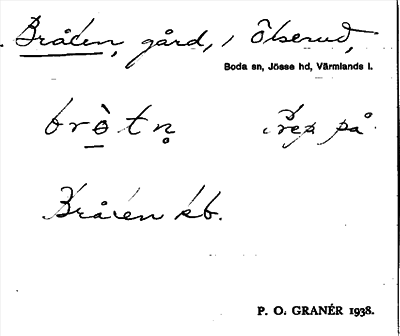 Bråten, gård, i Ölserud,
Boda sn, Jösse hd, Värmlands l.
brò̱tn̥ i rep på
Bråten kb.
P. O. GRANÉR 1938.